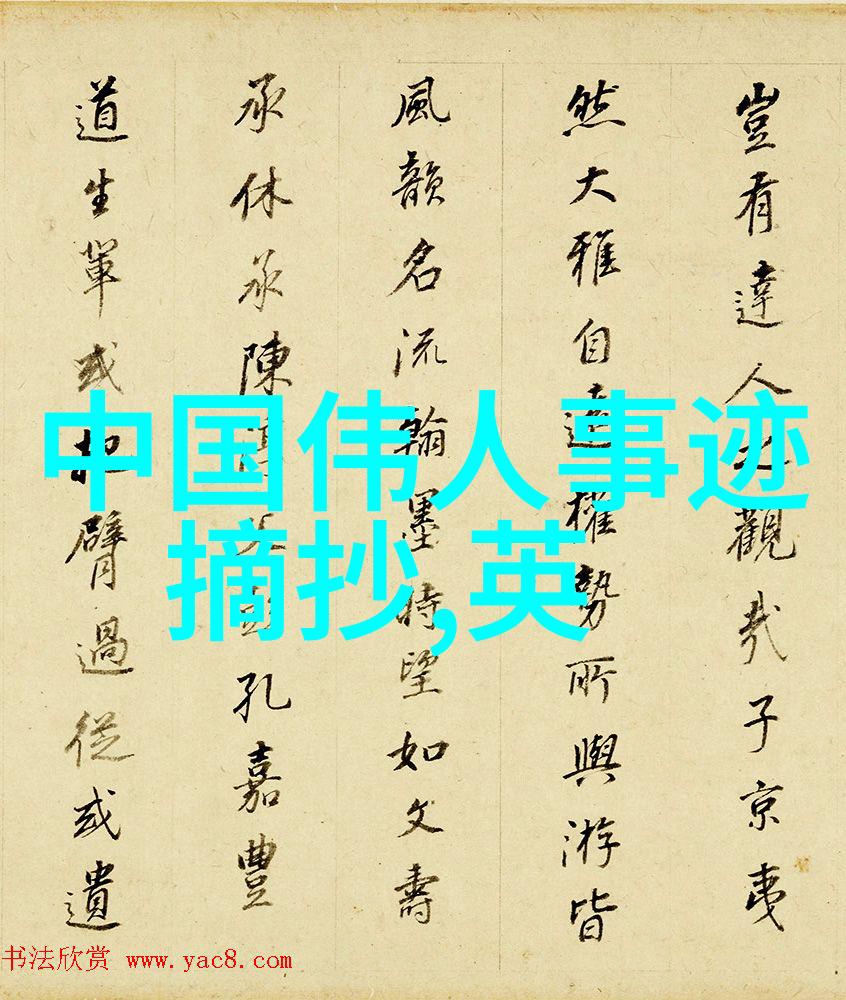 豈有達人觀哉子京夷
然大雅自遠權勢所與游皆
風韻名流翰墨時望如文壽
承休承陳孔嘉豐
道生輩或把臂過從或遺
中国伟人事迹
摘抄,英
书法欣赏 www.yac8.com